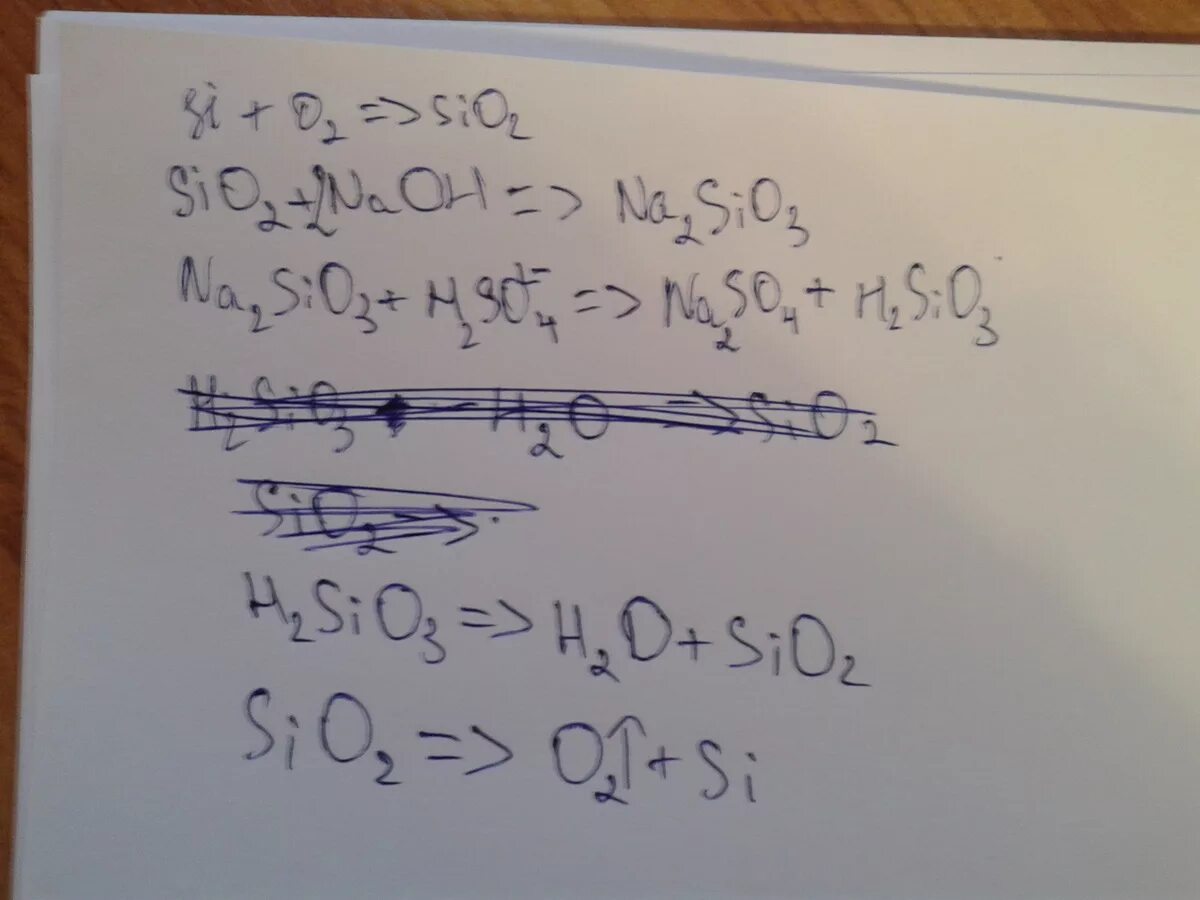 Si + O₂ => SiO₂
SiO₂ + 2NaOH => Na₂SiO₃
Na₂SiO₃ + H₂SO₄ => Na₂SO₄ + H₂SiO₃
H₂SiO₃ - H₂O => SiO₂
SiO₂ =>
H₂SiO₃ => H₂O + SiO₂
SiO₂ => O₂↑ + Si